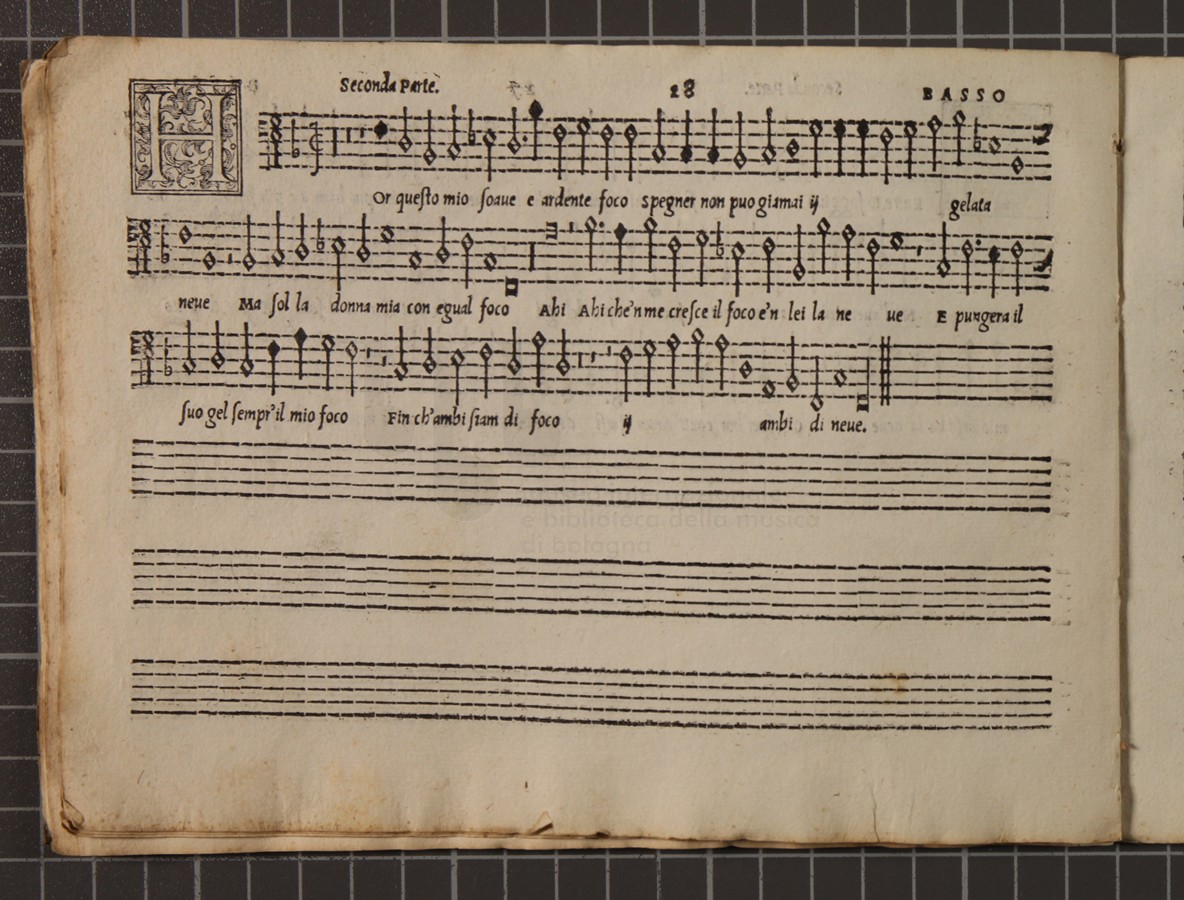 Seconda Parte. 28 BASSO
H
Or questo mio soaue e ardente foco Spegner non puo giamai ij gelata
neue Ma sol la donna mia con egual foco Ahi Ahi che'n me cresce il foco e'n lei la ne ue E pungera il
suo gel sempr'il mio foco Fin ch'ambi siam di foco ij ambi di neue.
e biblioteca della musica
di bologna